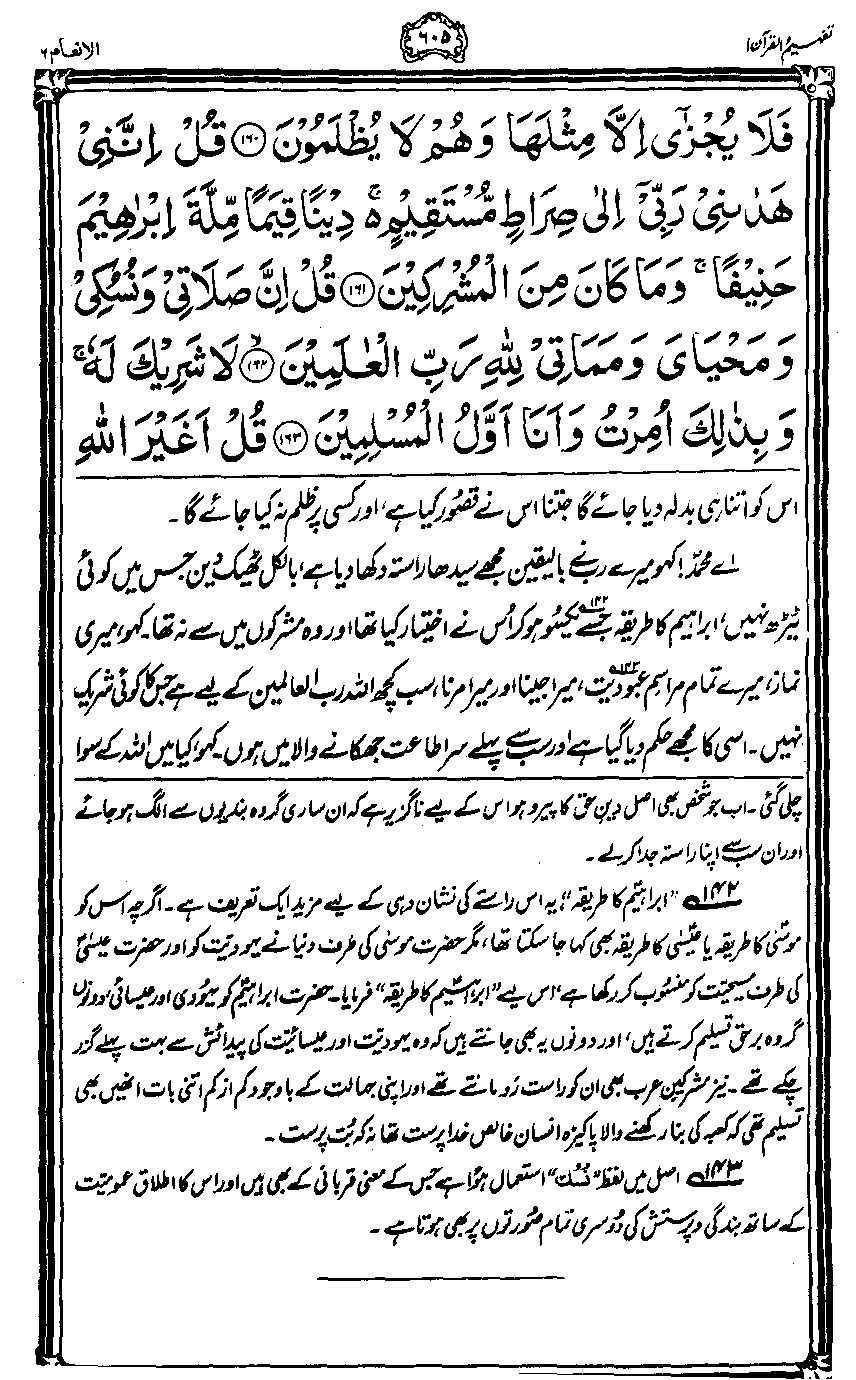 تفہیم القرآن ۱
۶۰۵
الانعام ۶
فَلَا يُجْزٰٓى اِلَّا مِثْلَهَا وَهُمْ لَا يُظْلَمُوْنَ ﴿۱۶۰﴾ قُلْ اِنَّنِيْ
هَدٰىنِيْ رَبِّيْٓ اِلٰى صِرَاطٍ مُّسْتَقِيْمٍ ۚ دِيْنًا قِيَمًا مِّلَّةَ اِبْرٰهِيْمَ
حَنِيْفًا ۚ وَمَا كَانَ مِنَ الْمُشْرِكِيْنَ ﴿۱۶۱﴾ قُلْ اِنَّ صَلَاتِيْ وَنُسُكِيْ
وَمَحْيَايَ وَمَمَاتِيْ لِلّٰهِ رَبِّ الْعٰلَمِيْنَ ﴿۱۶۲﴾ۙ لَا شَرِيْكَ لَهٗ ۚ
وَبِذٰلِكَ اُمِرْتُ وَاَنَا اَوَّلُ الْمُسْلِمِيْنَ ﴿۱۶۳﴾ قُلْ اَغَيْرَ اللّٰهِ
اس کو اتنا ہی بدلہ دیا جائے گا جتنا اس نے قصُور کیا ہے، اور کسی پر ظلم نہ کیا جائے گا۔
اے محمدؐ! کہو میرے رب نے بالیقین مجھے سیدھا راستہ دکھا دیا ہے، بالکل ٹھیک دین جس میں کوئی
ٹیڑھ نہیں، ابراہیم کا طریقہ۱۴۲ جسے یکسُو ہو کر اُس نے اختیار کیا تھا اور وہ مشرکوں میں سے نہ تھا۔ کہو، میری
نماز، میرے تمام مراسمِ عبودیت۱۴۳، میرا جینا اور میرا مرنا، سب کچھ اللہ رب العالمین کے لیے ہے جس کا کوئی شریک
نہیں۔ اسی کا مجھے حکم دیا گیا ہے اور سب سے پہلے سرِ اطاعت جھکانے والا میں ہوں۔ کہو، کیا میں اللہ کے سوا
چلی گئی۔ اب جو شخص بھی اصل دینِ حق کا پیرو ہو اس کے لیے ناگزیر ہے کہ ان ساری گروہ بندیوں سے الگ ہو جائے
اور ان سب سے اپنا راستہ جدا کر لے۔
۱۴۲ ”ابراہیمؑ کا طریقہ“ یہ اس راستے کی نشان دہی کے لیے مزید ایک تعریف ہے۔ اگرچہ اس کو
موسٰیؑ کا طریقہ یا عیسٰیؑ کا طریقہ بھی کہا جا سکتا تھا، مگر حضرت موسٰی کی طرف دنیا نے یہودیت کو اور حضرت عیسٰیؑ
کی طرف مسیحیّت کو منسُوب کر رکھا ہے، اس لیے ”ابراہیم کا طریقہ“ فرمایا۔ حضرت ابراہیمؑ کو یہودی اور عیسائی، دونوں
گروہ برحق تسلیم کرتے ہیں، اور دونوں یہ بھی جانتے ہیں کہ وہ یہودیّت اور عیسائیّت کی پیدائش سے بہت پہلے گزر
چکے تھے۔ نیز مشرکین عرب بھی ان کو راست رَو مانتے تھے اور اپنی جہالت کے باوجود کم از کم اتنی بات انھیں بھی
تسلیم تھی کہ کعبہ کی بنا رکھنے والا پاکیزہ انسان خالص خدا پرست تھا نہ کہ بُت پرست۔
۱۴۳ اصل میں لفظ ”نُسُك“ استعمال ہوا ہے جس کے معنی قربانی کے بھی ہیں اور اس کا اطلاق عمومیّت
کے ساتھ بندگی و پرستش کی دُوسری تمام صُورتوں پر بھی ہوتا ہے۔